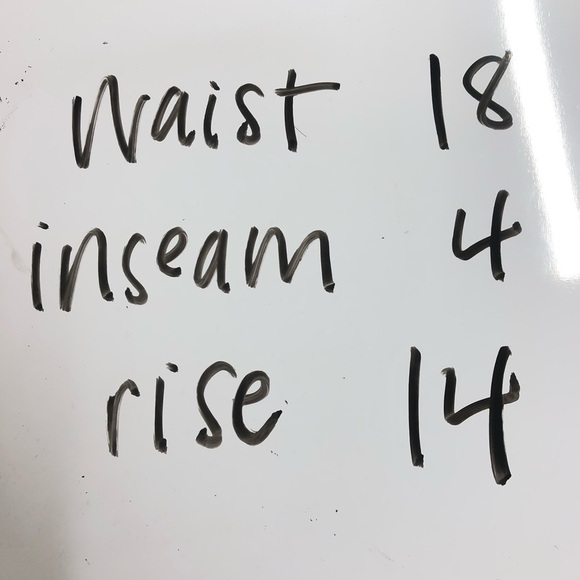 Waist 18
inseam 4
rise 14